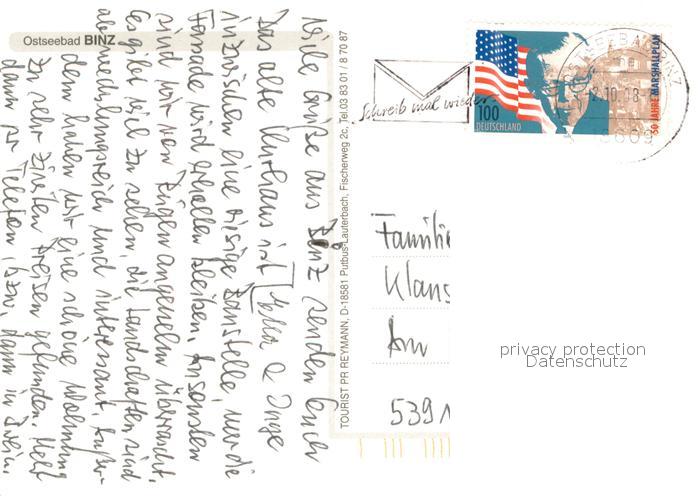 Ostseebad BINZ
Viele Grüße aus Binz senden Euch
Das alte Kurhaus ist
& Inge
inzwischen eine riesige Baustelle, nur die
Fassade wird erhalten bleiben. Ansonsten
sind wir von Rügen angenehm überrascht.
Es gibt viel zu sehen, die Landschaften sind
abwechslungsreich und interessant. Außer-
dem haben wir eine schöne Wohnung
zu sehr zivilen Preisen gefunden. Mehr
dann per Telefon, bzw. dann in
TOURIST PR REYMANN, D-18581 Putbus-Lauterbach, Fischerweg 2c, Tel.03 83 01 / 8 70 87
Schreib mal wieder
100
DEUTSCHLAND
50 JAHRE MARSHALLPLAN
Familie
Klaus
Am
5391
privacy protection
Datenschutz